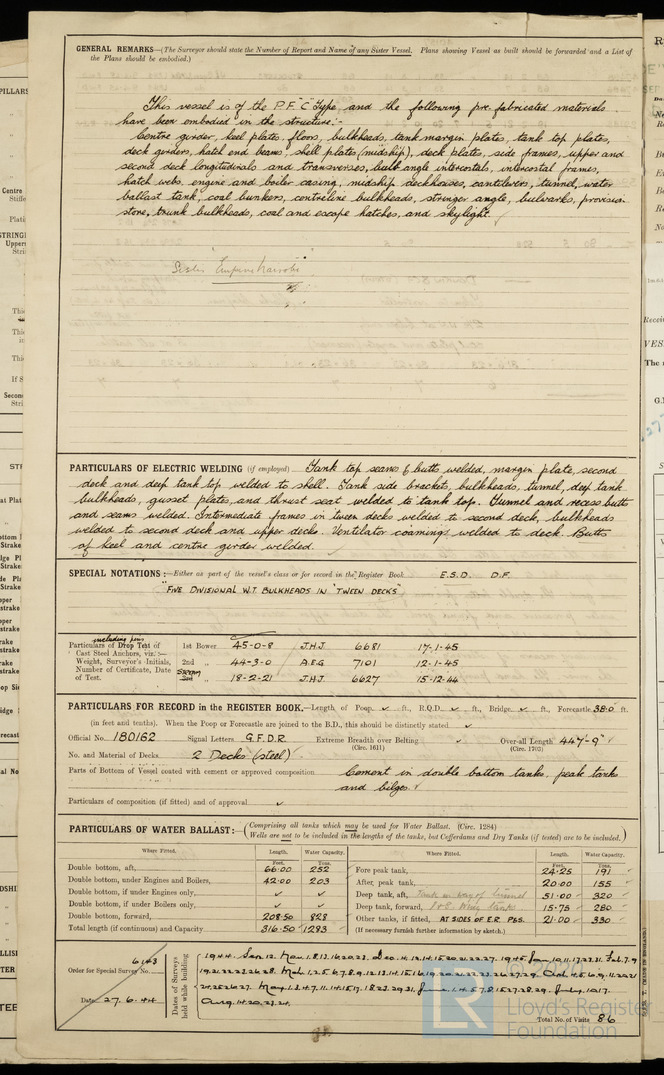 GENERAL REMARKS—(The Surveyor should state the Number of Report and Name of any Sister Vessel. Plans showing Vessel as built should be forwarded and a List of
the Plans should be embodied.)
This vessel is of the P.F. "C" Type, and the following pre fabricated materials
have been embodied in the structure:-
Centre girder, keel plates, floors, bulkheads, tank margin plates, tank top plates,
deck girders, hatch end beams, shell plates (midship), deck plates, side frames, upper and
second deck longitudinals and transverses, bulb angle intercostals, intercostal frames,
hatch webs, engine and boiler casing, midship deckhouses, cantilevers, tunnel, water
ballast tank, coal bunkers, centreline bulkheads, stringer angle, bulwarks, provision
store, trunk bulkheads, coal and escape hatches, and skylight.
Sister "Empire Nairobi"
PARTICULARS OF ELECTRIC WELDING (if employed) Tank top seams & butts welded, margin plate, second
deck and deep tank top welded to shell. Tank side bracket, bulkheads, tunnel, deep tank
bulkheads, gusset plates, and thrust seat welded to tank top. Tunnel and recess butts
and seams welded. Intermediate frames in tween decks welded to second deck, bulkheads
welded to second deck and upper decks. Ventilator coamings welded to deck. Butts
of keel and centre girder welded.
SPECIAL NOTATIONS:—Either as part of the vessel's class or for record in the Register Book E.S.D. D.F.
"FIVE DIVISIONAL W.T. BULKHEADS IN 'TWEEN DECKS"
including pins
Particulars of Drop Test of 1st Bower 45-0-8 J.H.J. 6681 17-1-45
Cast Steel Anchors, viz.:—
Weight, Surveyor's Initials, 2nd " 44-3-0 A.E.G 7101 12-1-45
Number of Certificate, Date
of Test. STREAM 3rd " 18-2-21 J.H.J. 6627 15-12-44
PARTICULARS FOR RECORD in the REGISTER BOOK,—Length of Poop ft., R.Q.D. ft., Bridge ft., Forecastle 38.0 ft.
(in feet and tenths). When the Poop or Forecastle are joined to the B.D., this should be distinctly stated
Official No. 180162 Signal Letters G.F.D.R. Extreme Breadth over Belting Over-all Length 447-9"
(Circ. 1611) (Circ. 1703)
No. and Material of Decks 2 Decks (steel)
Parts of Bottom of Vessel coated with cement or approved composition Cement in double bottom tanks, peak tanks
and bilges
Particulars of composition (if fitted) and of approval
PARTICULARS OF WATER BALLAST:— (Comprising all tanks which may be used for Water Ballast. (Circ. 1284)
Wells are not to be included in the lengths of the tanks, but Cofferdams and Dry Tanks (if tested) are to be included.)
Where Fitted. Length. Water Capacity. Where Fitted. Length. Water Capacity.
Feet. Tons. Feet. Tons.
Double bottom, aft, 66.00 252 Fore peak tank, 24.25 191
Double bottom, under Engines and Boilers, 42.00 203 After, peak tank, 20.00 155
Double bottom, if under Engines only, Deep tank, aft, Tank in way of tunnel 31.00 320
Double bottom, if under Boilers only, Deep tank, forward, P&S Wing tanks 15.75 280
Double bottom, forward, 208.50 828 Other tanks, if fitted, AT SIDES OF E.R. P&S. 21.00 330
Total length (if continuous) and Capacity 316.50 1283 (If necessary furnish further information by sketch.)
Order for Special Survey No. 6143
Date 27.6.44
Dates of Surveys held while building
Total No. of Visits 86
© 2020
LR
Lloyd's Register
Foundation